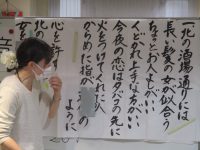 一北の酒場通りには
長い髪の女が似合う
ちょっとお人よしがいい
くどかれ上手な方がいい
今夜の恋はタバコの先に
火をつけてくれた人
からめた指が ように
心を許
北の
女を